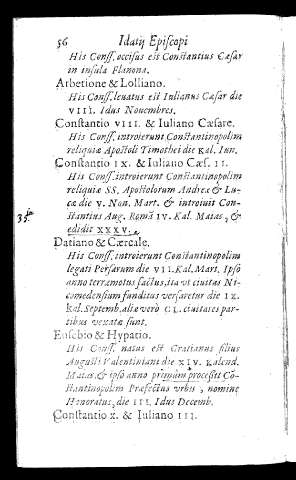 56 Idatij Episcopi
His Conss. occisus est Constantius Cæsar
in insula Flanona.
Arbetione & Lolliano.
His Conss. leuatus est Iulianus Cæsar die
VIII. Idus Nouembres.
Constantio VIII. & Iuliano Cæsare.
His Conss. introierunt Constantinopolim
reliquiæ Apostoli Timothei die Kal. Iun.
Constantio IX. & Iuliano Cæs. II.
His Conss. introierunt Constantinopolim
reliquiæ SS. Apostolorum Andreæ & Lu-
cæ die V. Non. Mart. & introiuit Con-
stantius Aug. Romã IV. Kal. Maias, &
edidit XXXV.
Datiano & Cærcale.
His Conss. introierunt Constantinopolim
legati Persarum die VII. Kal. Mart. Ipso
anno terræmotus factus, ita vt ciuitas Ni-
comedensium funditus versaretur die IX.
Kal. Septemb. aliæ verò CL. ciuitates par-
tibus vexatæ sunt.
Eusebio & Hypatio.
His Conss. natus est Gratianus filius
Augusti Valentiniani die XIV. Kalend.
Maias. & ipso anno primùm processit Co-
stantinopolim Præfectus vrbis, nomine
Honoratus, die III. Idus Decemb.
Constantio X. & Iuliano III.